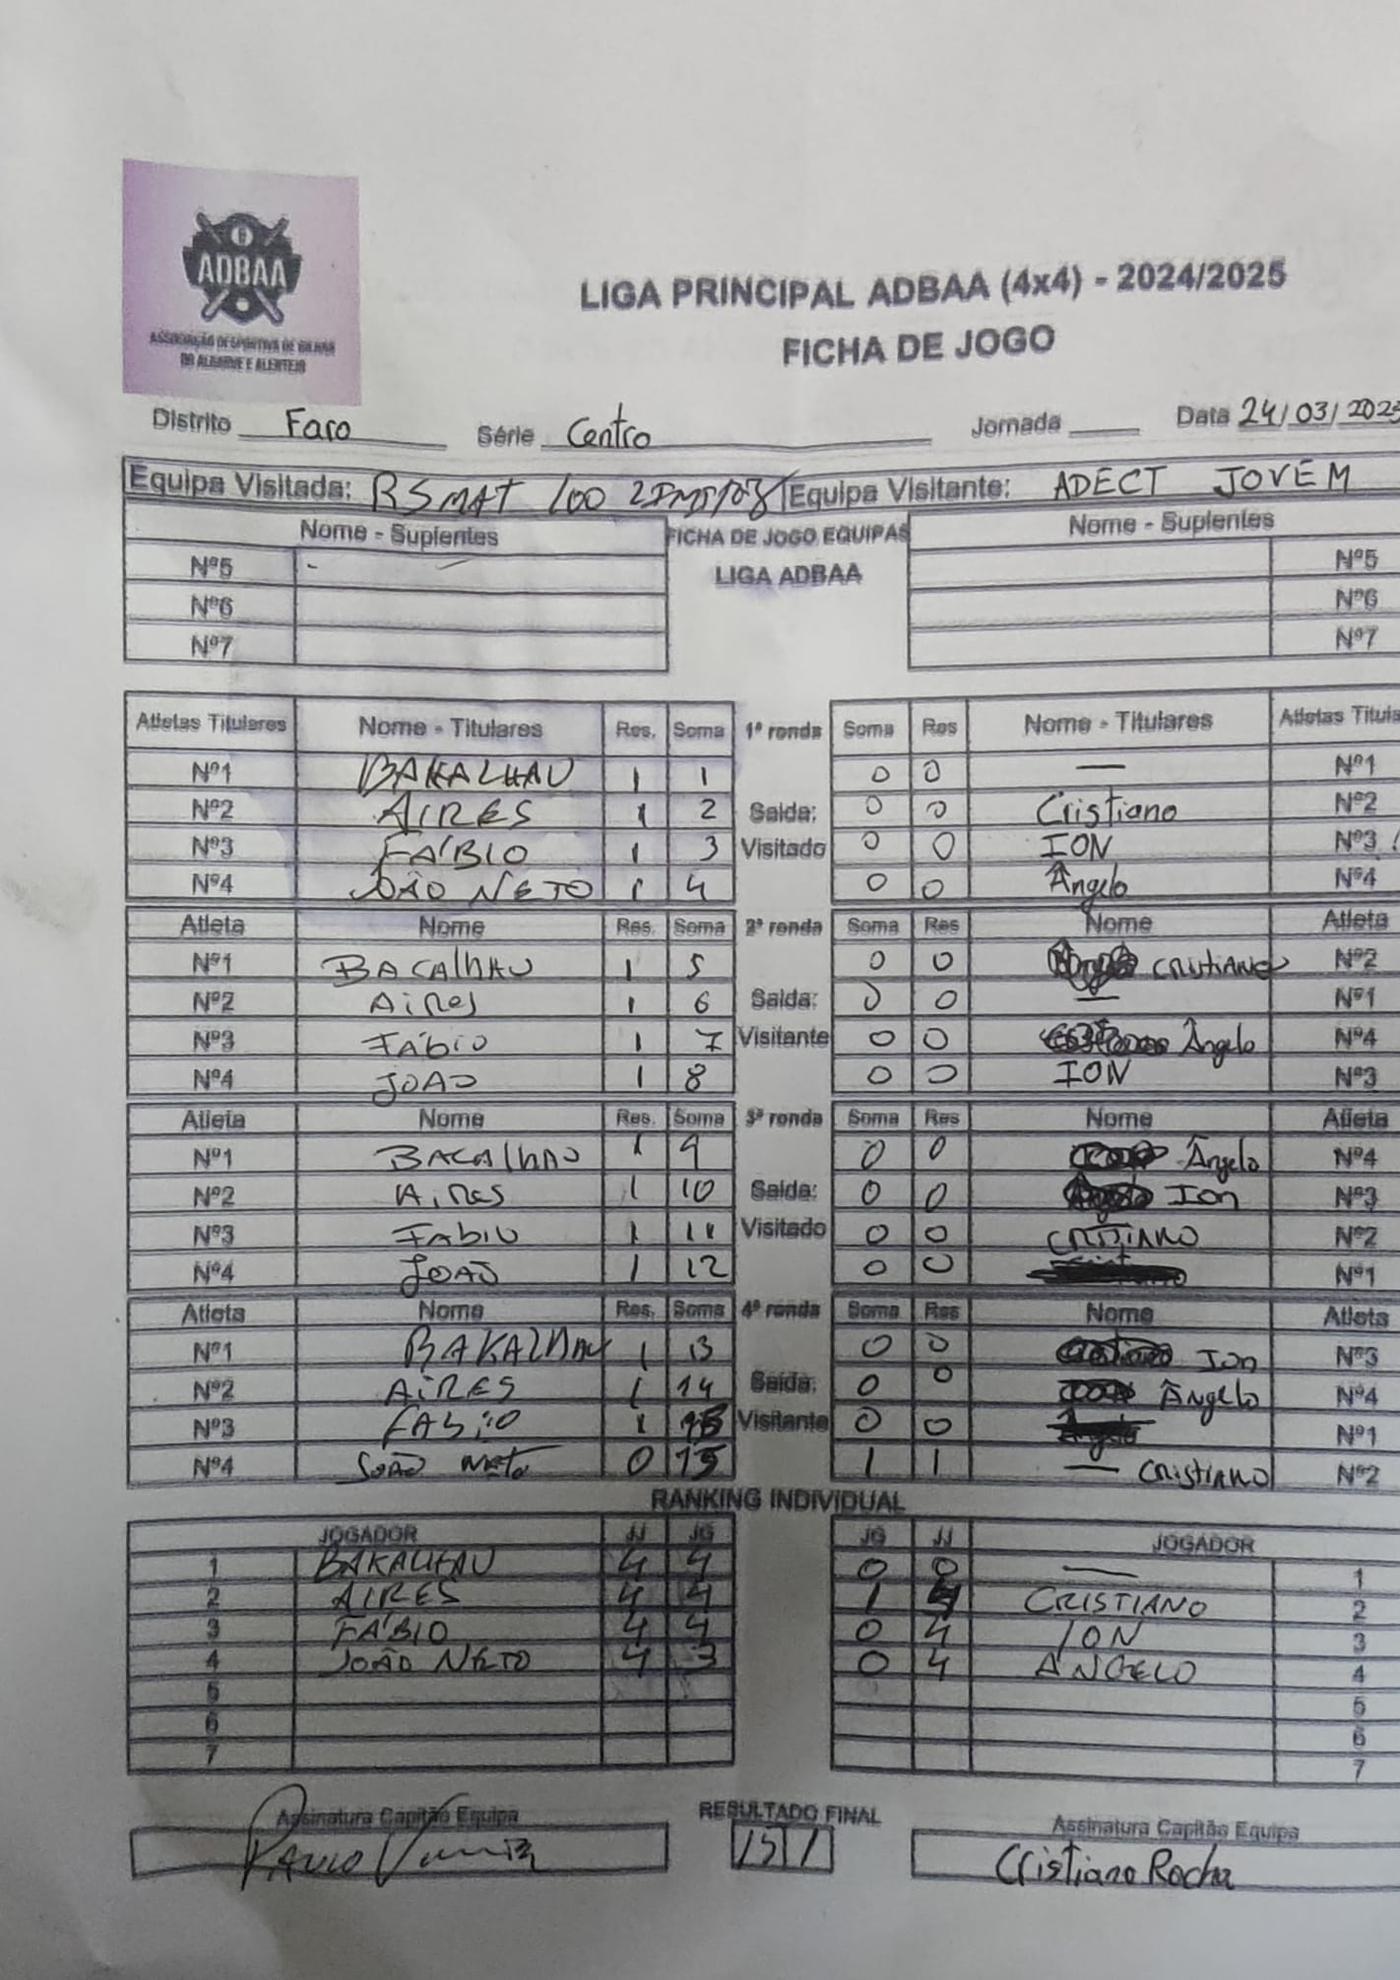 ADBAA
ASSOCIAÇÃO DESPORTIVA DE BILHAR
DO ALGARVE E ALENTEJO
LIGA PRINCIPAL ADBAA (4x4) - 2024/2025
FICHA DE JOGO
Distrito Faro Série Centro Jornada Data 24/03/2025
Equipa Visitada: BSMAT 100 Equipa Visitante: ADECT JOVEM
Nome - Suplentes FICHA DE JOGO EQUIPAS Nome - Suplentes
Nº5 - LIGA ADBAA Nº5
Nº6 Nº6
Nº7 Nº7
Atletas Titulares Nome - Titulares Res. Soma 1ª ronda Soma Res Nome - Titulares Atletas Titula
Nº1 BAKALHAU 1 1 0 0 — Nº1
Nº2 AIRES 1 2 Saída: 0 0 Cristiano Nº2
Nº3 FÁBIO 1 3 Visitado 0 0 ION Nº3
Nº4 JOÃO NETO 1 4 0 0 Ângelo Nº4
Atleta Nome Res. Soma 2ª ronda Soma Res Nome Atleta
Nº1 BACALHAU 1 5 0 0 CRISTIANO Nº2
Nº2 Aires 1 6 Saída: 0 0 — Nº1
Nº3 FÁBIO 1 7 Visitante 0 0 Ângelo Nº4
Nº4 JOAO 1 8 0 0 ION Nº3
Atleta Nome Res. Soma 3ª ronda Soma Res Nome Atleta
Nº1 BACALHAO 1 9 0 0 Ângelo Nº4
Nº2 Aires 1 10 Saída: 0 0 Ion Nº3
Nº3 FABIO 1 11 Visitado 0 0 CRISTIANO Nº2
Nº4 JOAO 1 12 0 0 Nº1
Atleta Nome Res. Soma 4ª ronda Soma Res Nome Atleta
Nº1 BAKALHAU 1 13 0 0 Ion Nº3
Nº2 AIRES 1 14 Saída: 0 0 Ângelo Nº4
Nº3 FABIO 1 15 Visitante 0 0 Nº1
Nº4 JOÃO Neto 0 15 1 1 — CRISTIANO Nº2
RANKING INDIVIDUAL
JOGADOR JJ JG JG JJ JOGADOR
1 BAKALHAU 4 4 0 0 — 1
2 AIRES 4 4 1 4 CRISTIANO 2
3 FÁBIO 4 4 0 4 ION 3
4 JOÃO NETO 4 3 0 4 ANGELO 4
5 5
6 6
7 7
Assinatura Capitão Equipa RESULTADO FINAL Assinatura Capitão Equipa
PAULO 15 1 Cristiano Rocha